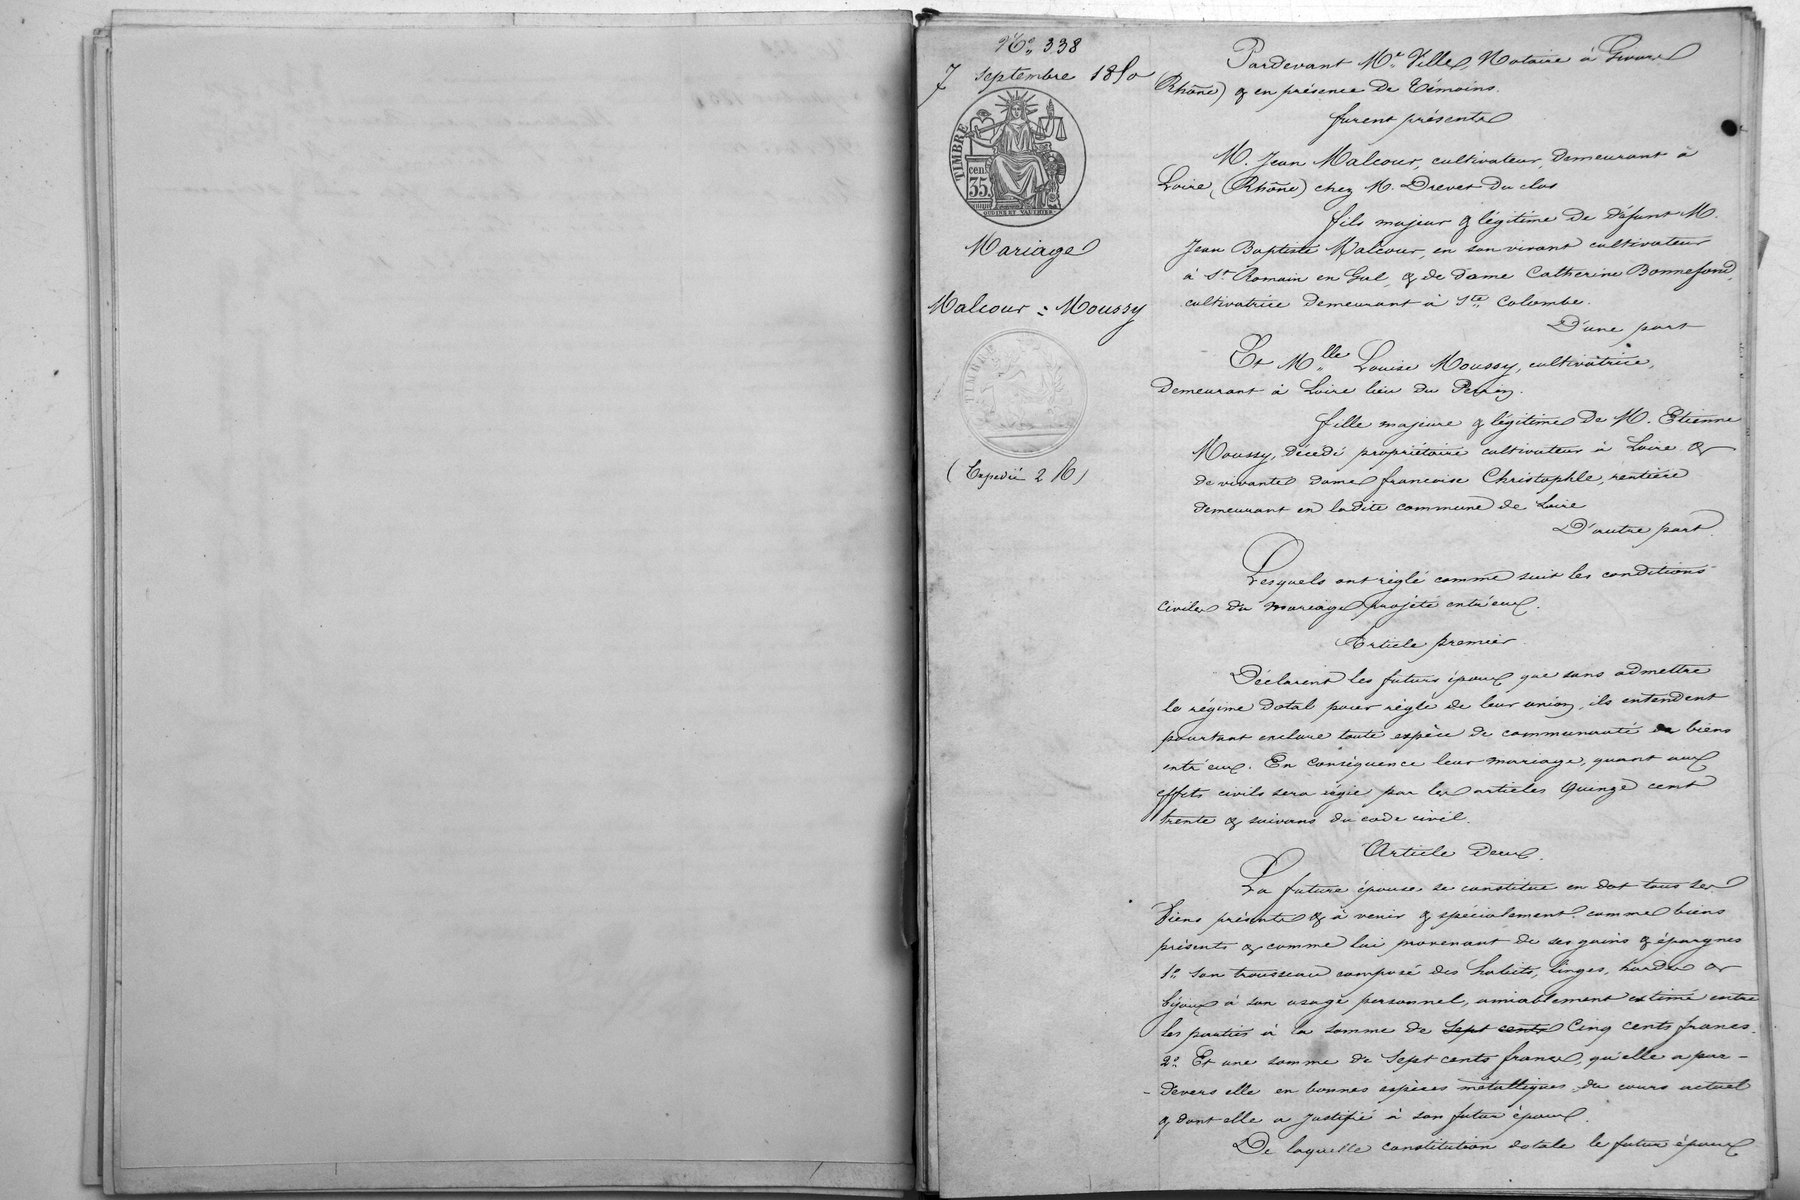 No 338
7 septembre 1850
TIMBRE
cen.
35
OUDINE ET VAUTHIER
Mariage
Malcour = Moussy
TIMBRE
(Expédié 2 R)
Pardevant Me Ville, Notaire à Givors
(Rhône) & en présence de Témoins.
furent présents
M. Jean Malcour, cultivateur demeurant à
Loire, (Rhône) chez M. Drevet du clos
fils majeur & légitime de défunt M.
Jean Baptiste Malcour, en son vivant cultivateur
à St Romain en Gal, & de dame Catherine Bonnefond,
cultivatrice demeurant à Ste Colombe.
D'une part
Et Mlle Louise Moussy, cultivatrice,
demeurant à Loire lieu du
fille majeure & légitime de M. Etienne
Moussy, décédé propriétaire cultivateur à Loire &
de vivante dame francoise Christophle, rentière
demeurant en ladite commune de Loire
D'autre part.
Lesquels ont réglé comme suit les conditions
civiles du mariage projeté entr'eux.
Article premier.
Déclarent les futurs époux que sans admettre
le régime dotal pour règle de leur union, ils entendent
pourtant exclure toute espèce de communauté de biens
entr'eux. En conséquence leur mariage, quant aux
effets civils sera régie par les articles Quinze cent
trente & suivans du code civil.
Article Deux.
La future épouse se constitue en dot tous ses
biens présents & à venir & spécialement comme biens
présents & comme lui provenant de ses gains & épargnes
1o Son trousseau composé des habits, linges, hardes &
bijoux à son usage personnel, amiablement estimé entre
les parties à la somme de sept cents Cinq cents francs.
2o Et une somme de Sept cents francs, qu'elle a par-
-devers elle en bonnes espèces métalliques du cours actuel
& dont elle a justifié à son futur époux.
De laquelle constitution dotale le futur époux